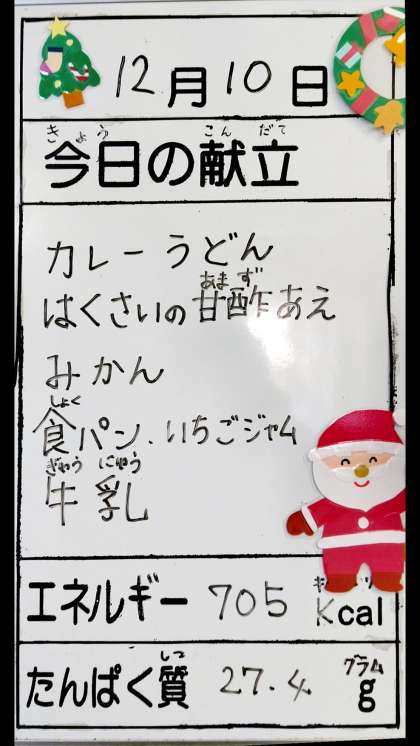 12月10日
きょう こんだて
今日の献立
カレーうどん
あまず
はくさいの甘酢あえ
みかん
しょく
食パン、いちごジャム
ぎゅうにゅう
牛乳
エネルギー 705 Kcal
しつ グラム
たんぱく質 27.4 g